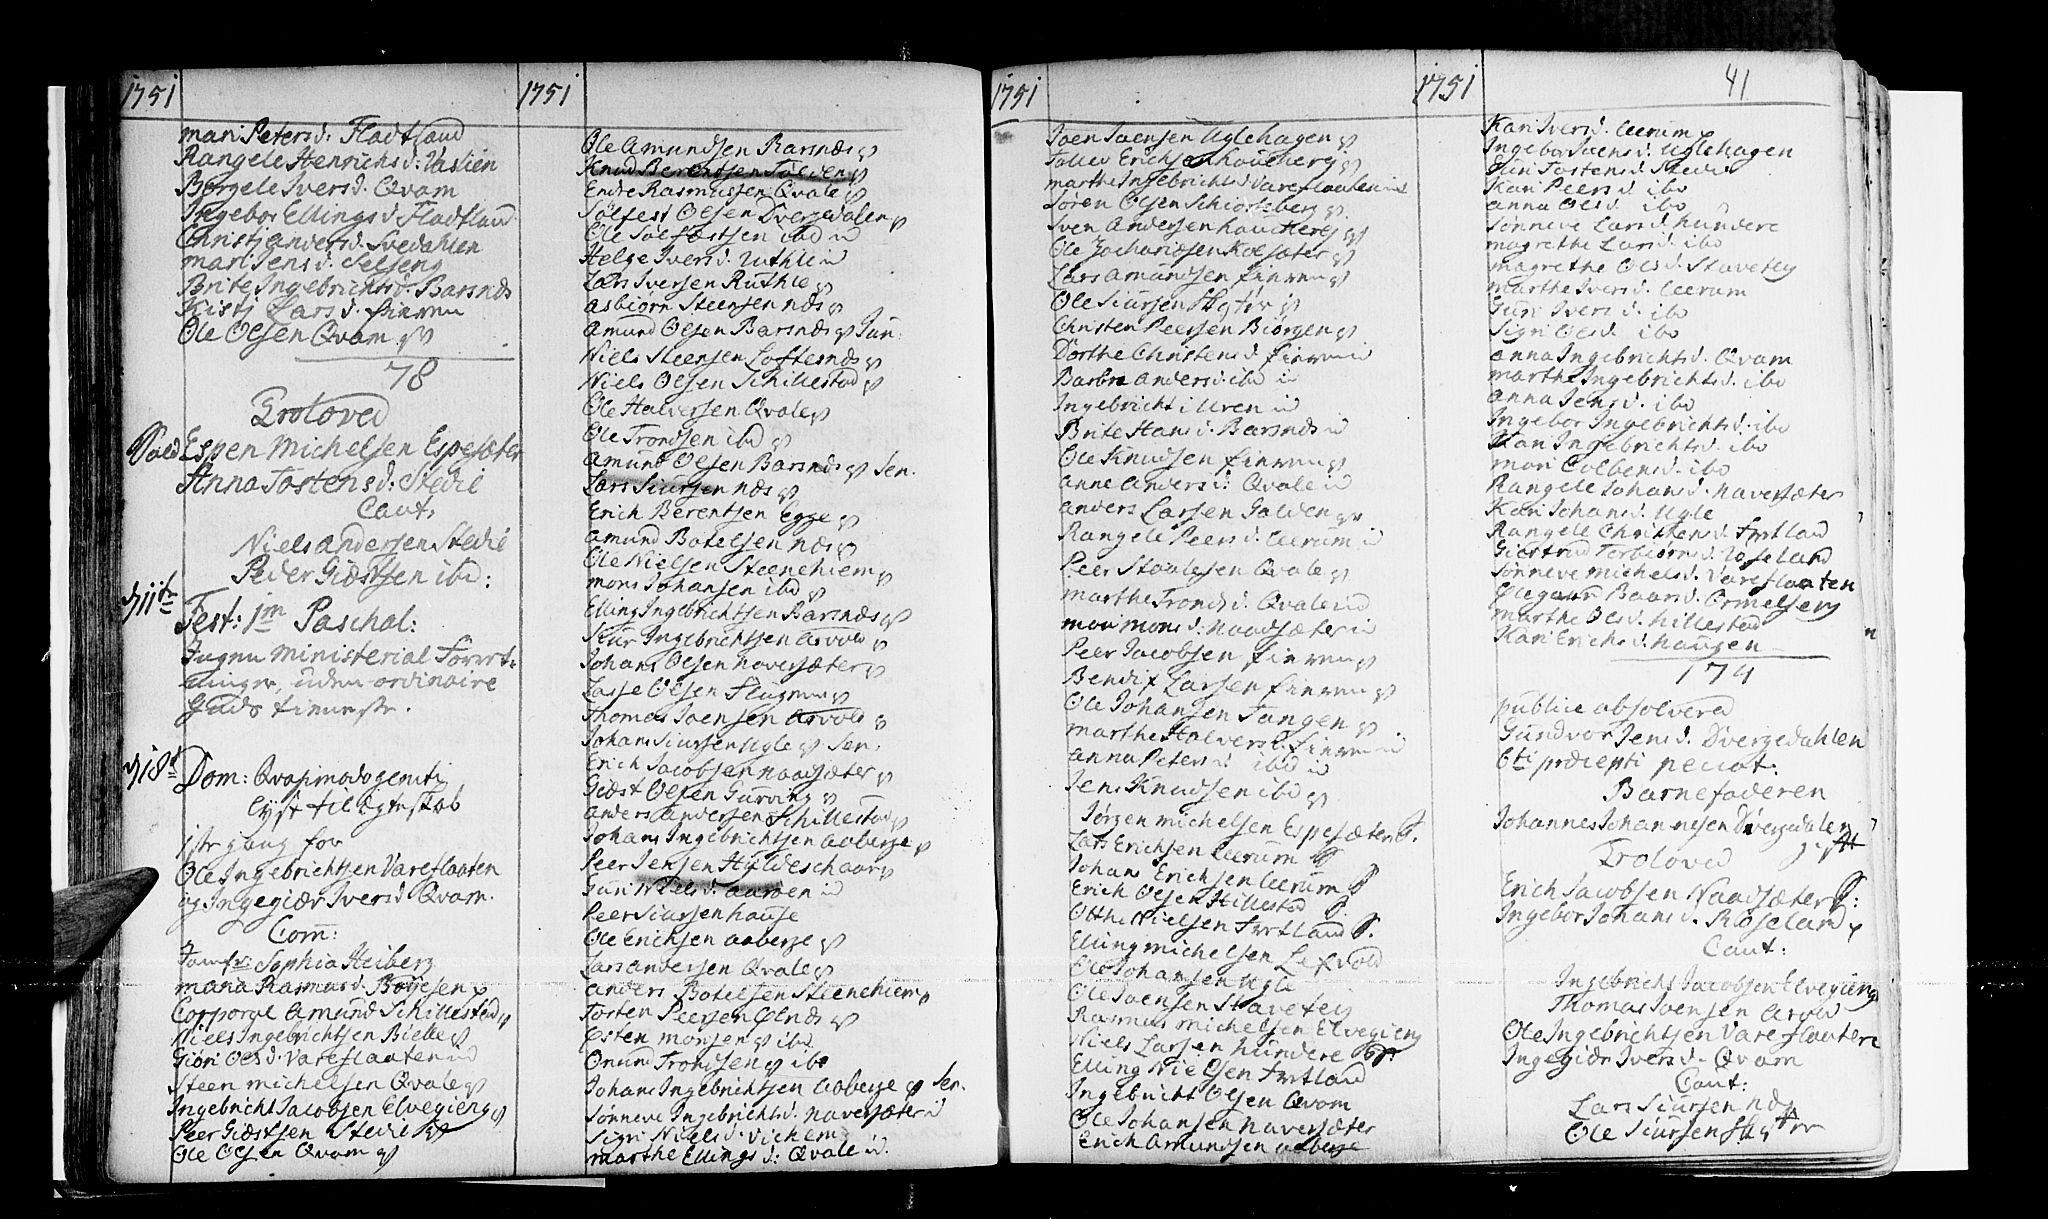 1751
mari Petersd. Fladtland
Rangele Henrichsd. Vaslien
Borgele Iversd. Qvam
Ingebor Ellingsd Fladtland
Christj Andersd. Svedahlen
mari Jensd. Selseng
Brite Ingebrichtsd. Barsnæs
Kistj Larsd. finren
Ole Olsen Qvam
78
Troloved
Espen Michelsen Espesæter
Anna Tostensd. Stedie
Caut:
Niels Andersen Stedie
Peder Giæstsen ibd:
Fest: 1m Paschal:
Ingen ministerial Forret-
ninger, uden ordinaire
Guds tieneste.
18de Dom: Qvasimodogeniti
lyst til Egteskab
1ste gang for
Ole Ingebrichtsen Vareflaaten
og Ingegiær Iversd. Qvam.
Com:
Jomfr: Sophia Heiberg
maria Rasmusd. Boyesen
Corporal Amund Schillestad
Niels Ingebrichtsen Bielle
Giøri Olsd. Vareflaaten
Steen michelsen Qvale
Ingebricht Jacobsen Elvegieng
Peer Giæstsen Stedie
Ole Olsen Qvam
1751
Ole Amundsen Barsnæs
Knud Berentsen
Endre Rasmussen Qvale
Sølfest Olsen Dvergedalen
Ole Sølfæstsen ibd
Helge Iversd. Ruthle
Lars Iversen Ruthle
Asbiørn Steensen næs
Amund Olsen Barsnæs Jun:
Niels Steensen Loftesnæs
Niels Olsen Schillestad
Ole Halversen Qvale
Ole Trondsen ibd
Amund Olsen Barsnæs Sen.
Lars Siursen næs
Erich Berentsen Egge
Amund Botelsen næs
Ole Nielsen Steenehiem
mons Johansen ibd
Elling Ingebrichtsen Barsnæs
Siur Ingebrichtsen Arvold
Johans Olsen naversæter
Lasse Olsen Flugem
Thomas Joensen Arvold
Johans Siursen Ugle Sen.
Erich Jacobsen Naadsæter
Giæst Olsen Gurvin
Anders Andersen Schillestad
Johans Ingebrichtsen Aaberge
Peer Jensen Huldeschaar
Guri Nielsd. Aarøen
Peer Siursen hauge
Ole Erichsen Aaberge
Lars Andersen Qvale
Anders Botelsen Steenehiem
Torsten Peersen Ølnæs
Esten monsen ibd
Onund Trondsen ibd
Johans Ingebrichtsen Aaberge Sen.
Sønneve Ingebrichtsd. Naversæter
Sigri Nielsd. Vichem
marthe Ellingsd: Qvale
1751
Joen Joensen Uglehagen
Tollev Erichsen
marthe Ingebrichtsd Vareflaaten
Søren Olsen Schiortsberg
Sven Andersen
Ole Zachariæsen Kolsæter
Lars Amundsen finren
Ole Siursen
Christen Peersen Biørgen
Dorthe Christensd. finren
Barbra Andersd. ibd
Ingebricht i Uren
Brite Hansd. Barsnæs
Ole Knudsen finren
Anne Andersd: Qvale
Anders Larsen Galden
Rangele Peersd. Leerum
Peer Staalesen Qvale
marthe Tronsd. Qvale
mari monsd. Naadsæter
Peer Jacobsen finren
Bendix Larsen finren
Ole Johansen Tangen
marthe Halversd. finren
Anna Petersd ibd
Jens Knudsen ibd
Jørgen michelsen Espesæter
Lars Erichsen Leerum
Johans Erichsen Leerum
Erich Olsen Hillestad
Otthe Nielsen Frtland
Elling michelsen Lefvold
Ole Johansen Ugle
Ole Joensen Stavetey
Rasmus michelsen Elvegieng
Niels Larsen hundere
Elling Nielsen Frtland
Ingebricht Olsen Qvam
Ole Johansen naversæter
Erich Amundsen Aaberge
1751
41
Kari Iversd. Leerum
Ingebor Svensd. Uglehagen
Guri Tostensd. Stedie
Kari Peersd ibd
Anna Olsd. ibd
Sønneve Larsd. hundere
magrethe Larsd. ibd
magrethe Olsd. Stavetey
marthe Iversd. Leerum
Guri Iversd. ibd
Sigri Olsd. ibd
Anna Ingebrichtsd. Qvam
marthe Ingebrichtsd. ibd
Anna Jensd. ibd
Ingebor Ingebrichtsd. ibd
Kari Ingebrichtsd. ibd
mari Colbensd. ibd
Rangele Johansd. Naversæter
Kari Johansd. Ugle
Rangele Christensd. Frtland
Giertrud Torbiørnsd. Roseland
Sønneve michelsd. Vareflaaten
Baarsd. Ormelseng
marthe Olsd. hillestad
Kari Erichsd. haugen
174
publice absolvered
Gundvor Jensd. Dvergedahlen
6ti præcepti peccat:
Barnefaderen
Johannes Johannesen Dvergedalen
Troloved
Erich Jacobsen Naadsæter
Ingebor Johansd. Roseland
Caut:
Ingebricht Jacobsen Elvegieng
Thomas Joensen Arold
Ole Ingebrichtsen Vareflaaten
Ingegiær Iversd. Qvam
Caut:
Lars Siursen næs
Ole Siursen